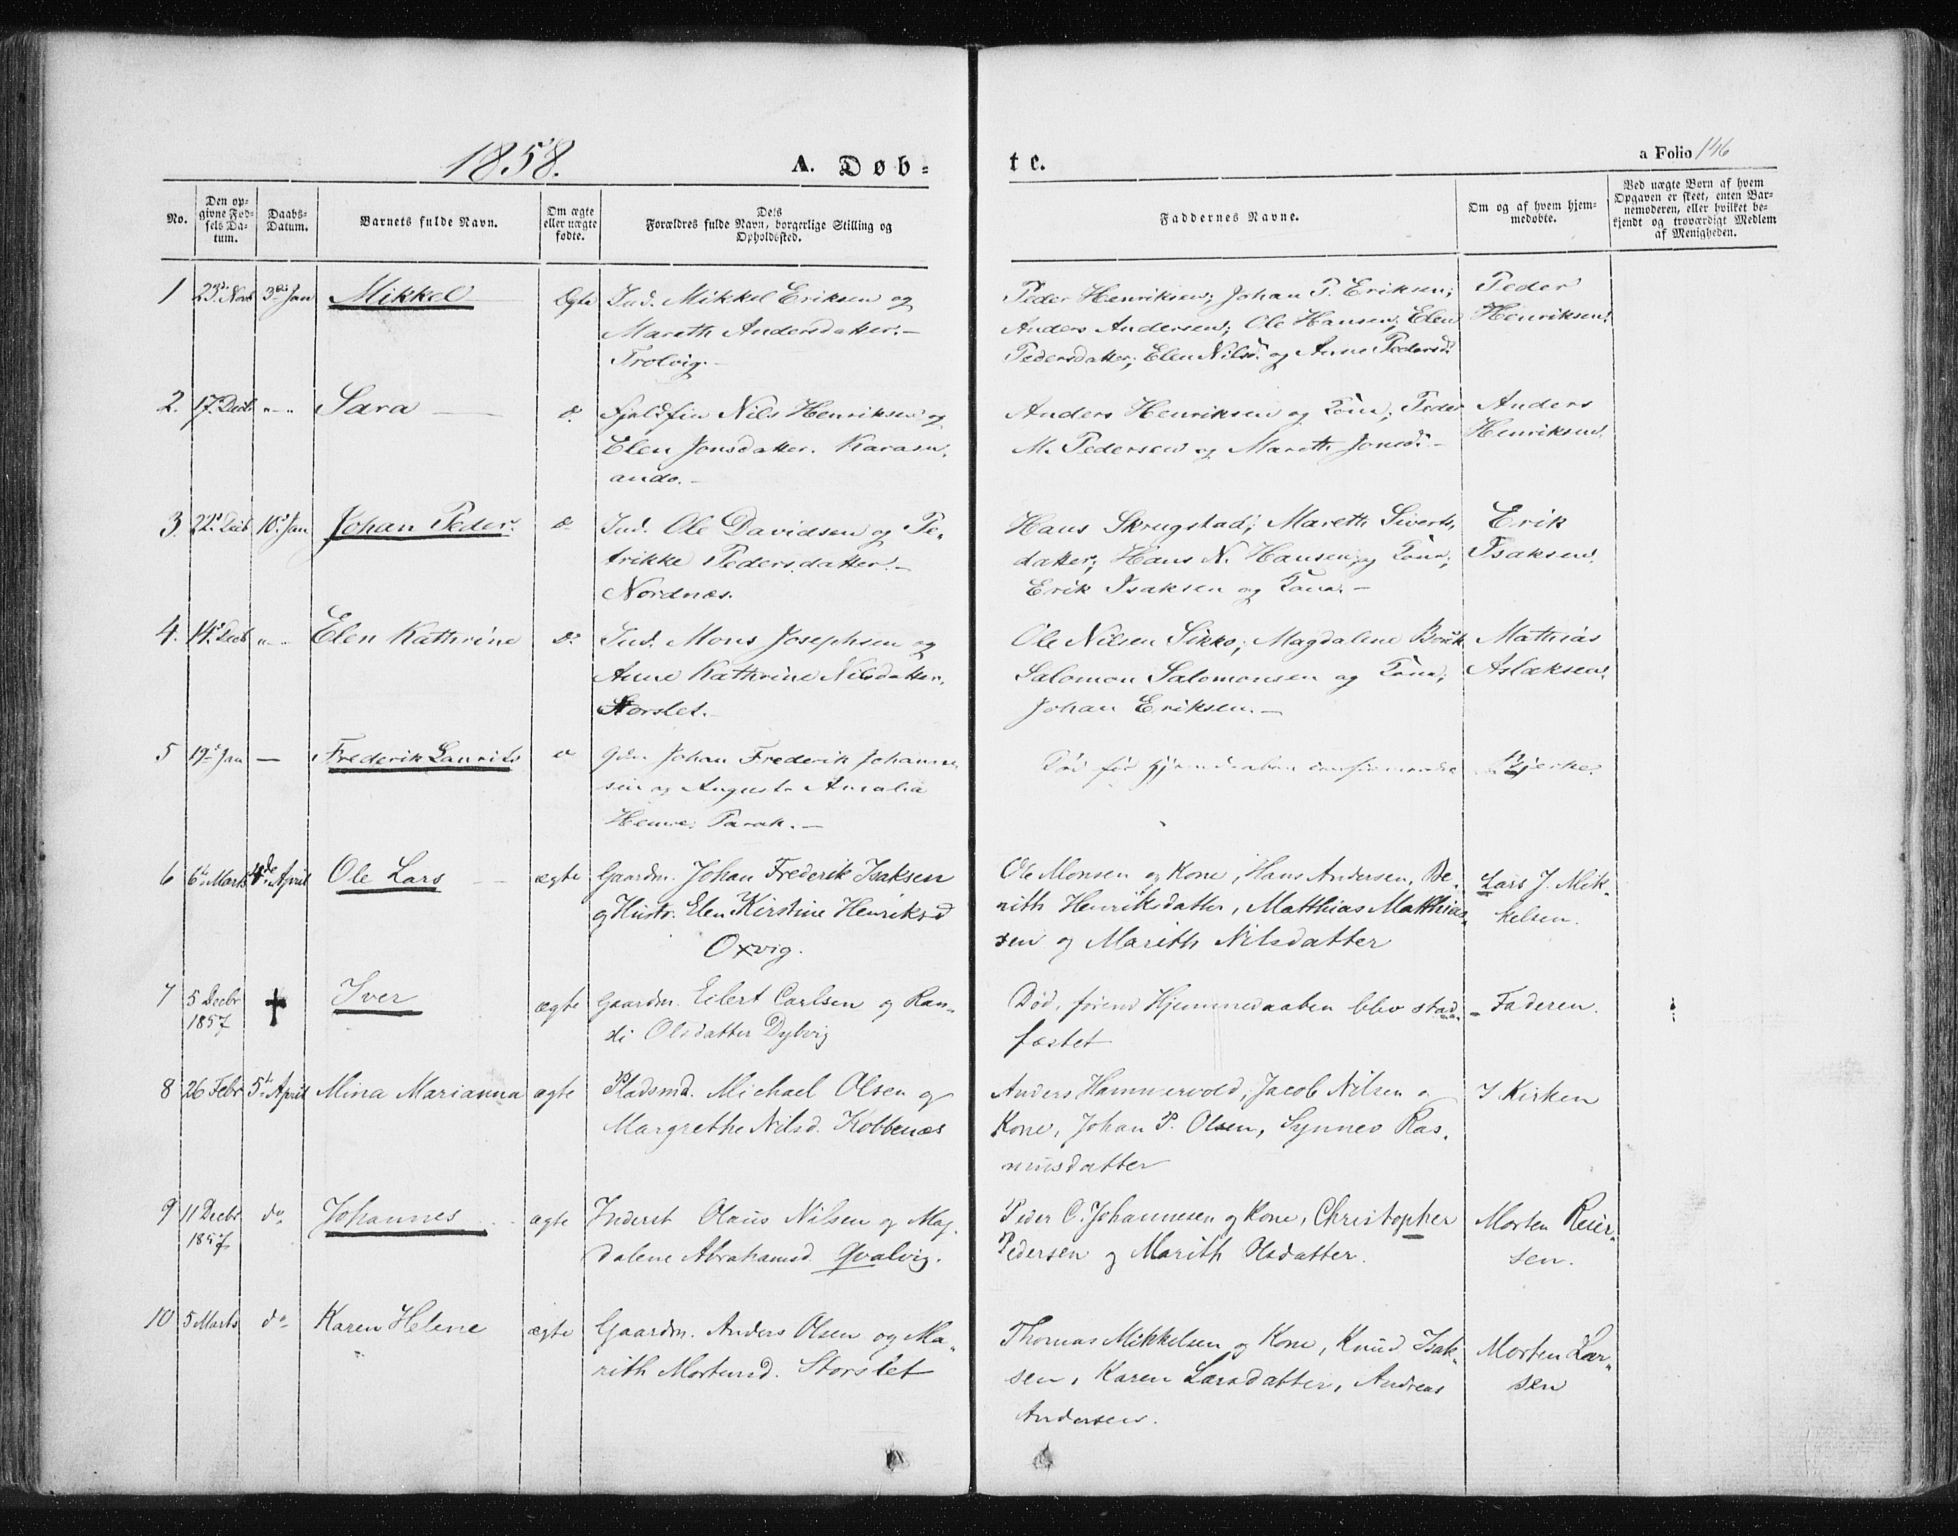 1858. A. Døb=
te.
a Folio 146
No.
Den op-
givne Fød-
sels Da-
tum.
Daabs-
Datum.
Barnets fulde Navn.
Om ægte
eller uægte
fødte.
Dets
Forældres fulde Navn, borgerlige Stilling og
Opholdssted.
Faddernes Navne.
Om og af hvem hjem-
medøbte.
Ved uægte Børn af hvem
Opgaven er skeet, enten Bar-
nemoderen, eller hvilket be-
kjendt og troværdigt Medlem
af Menigheden.
1 23. Novb 3. Jan Mikkel Ægte Ind. Mikkel Eriksen og
Mareth Andersdatter.
Trolvig.
Peder Henriksen; Johan P. Eriksen;
Anders Andersen; Ole Hansen; Elen
Pedersdatter; Elen Nilsd. og Anne Pedersd.
Peder
Henriksen.
2. 17. Decb " - " Sara d. Fjeldfin Nils Henriksen og
Elen Jonsdatter. Karasu,
ando.
Anders Henriksen og Kone; Peder
M. Pedersen og Mareth Jonsd.
Anders
Henriksen.
3. 22. Decb 10. Jan Johan Peder. d. Ind. Ole Davidsen og Pe-
trikke Pedersdatter.
Nordnæs.
Hans Skrugstad; Mareth Siverts
datter; Hans N. Hansen og Kone;
Erik Isaksen og Kone.
Erik
Isaksen.
4. 14. Decb " - " Elen Kathrine D. Ind. Mons Josephsen og
Anne Kathrine Nilsdatter.
Storslet.
Ole Nilsen Sikko; Magdalene
Salomon Salomonsen og Kone;
Johan Eriksen.
Mathias
Aslaksen.
5 19. Jan — Frederik Laurits Johan Frederik Johanne
sen og Augusta Amalia
Død før Hjemmedaaben
Bjerke.
6 6. Marts 4de April Ole Lars ægte Gaardm. Johan Frederik Isaksen
og Hustr. Elen Kirstine Henriksd
Oxvig.
Ole Monsen og Kone, Hans Andersen, Be-
rith Henriksdatter, Matthias Matthias-
sen og Mareth Nilsdatter
Lars J. Mik-
kelsen.
7 5 Decbr
1857 † Iver ægte Gaardm. Eilert Carlsen og Ran-
di Olsdatter Dybvig
Død, førend Hjemmedaaben blev stad-
fæstet
Faderen.
8 26 Febr 5t April Mina Marianna ægte Pladsmd. Michael Olsen og
Margrethe Nilsd. Kobbenæs
Anders Hammervold, Jacob Nilsen o
Kone, Johan P. Olsen, Synnev Ras-
musdatter
I Kirken
9 11 Decbr
1857 do Johannes ægte Inderst Olaus Nilsen og Mag-
dalene Abrahamsd. Qvalvig.
Peder O. Johannesen og Kone, Christopher
Pedersen og Marith Olsdatter.
Morten Reier-
sen.
10 5 Marts do Karen Helene ægte Gaardm. Anders Olsen og Ma-
rith Mortensd. Storslet
Thomas Mikkelsen og Kone, Knud Isak-
sen, Karen Larsdatter, Andreas
Andersen.
Morten Lar-
sen